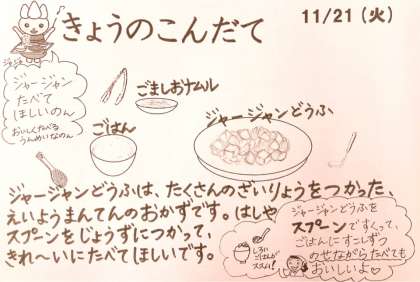 きょうのこんだて
11/21（火）
ジャジャ
ジャージャン
たべて
ほしいのん
おいしくたべる
うんめいなのん
ごましおナムル
ごはん
ジャージャンどうふ
ジャージャンどうふは、たくさんのざいりょうをつかった、
えいようまんてんのおかずです。はしや
スプーンをじょうずにつかって、
きれ〜いにたべてほしいです。
ジャージャンどうふを
スプーンですくって、
ごはんにすこしずつ
のせながらたべても
おいしいよ♡
しろい
ごはんが
ススム!